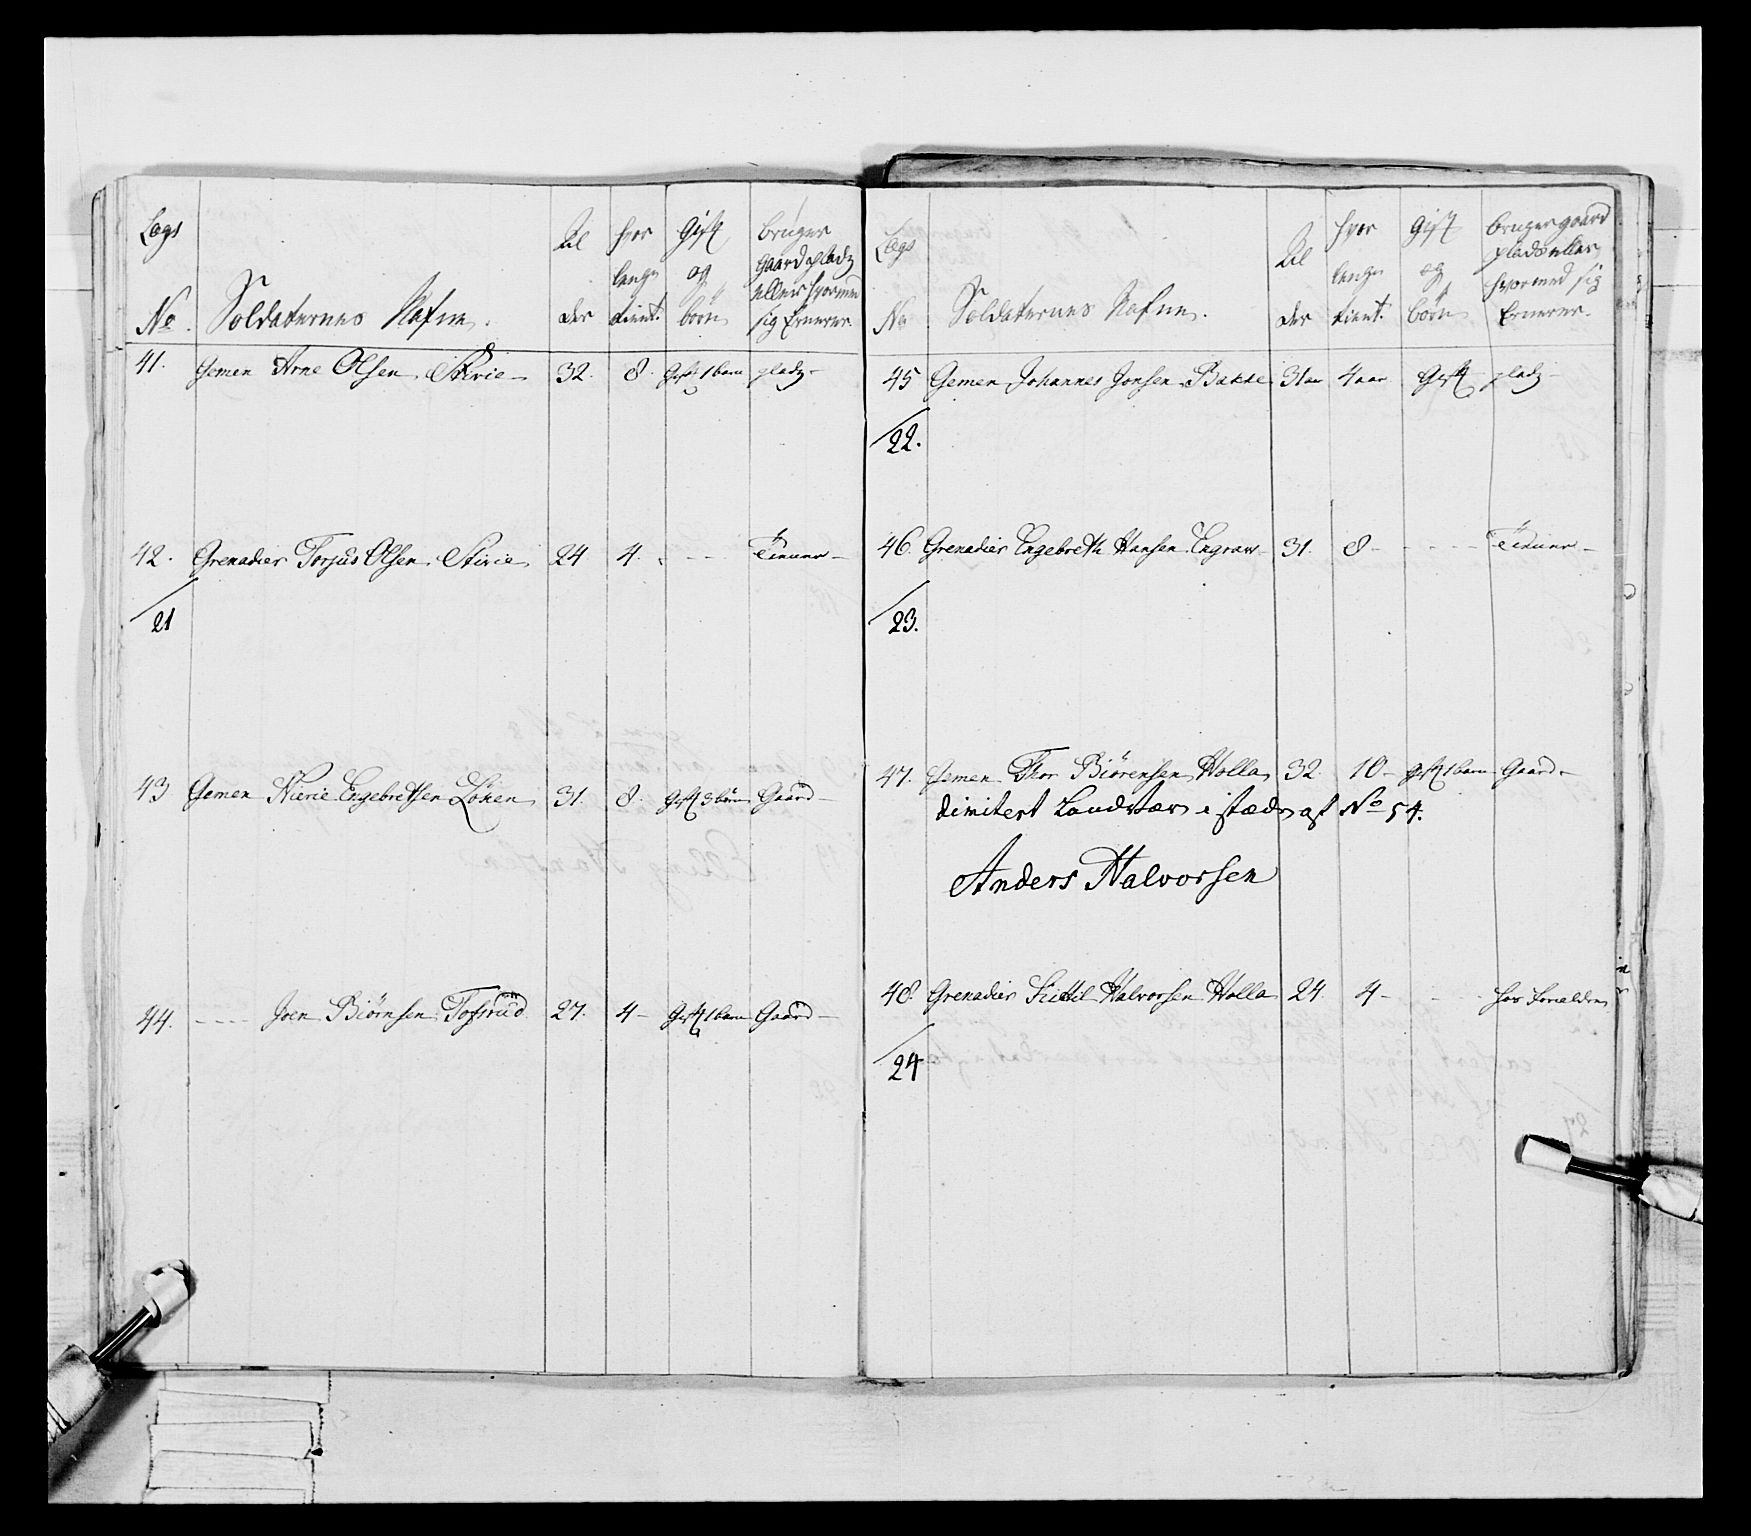 Lægs No. Soldaternes Nafne. Al der hvor lenge tient. Gift og børn bruger gaard pladz eller hvormed sig Ernerer.
41. Gemen Arne Olsen Stirie 32. 8. Gift 1 barn pladz
42. Grenadier Torjus Olsen Stirie 24 4. - - - Tiener
21
43 Gemen Engebretsen Løken 31. 8. Gift 3 børn Gaard
44. - - - Joen Biørnsen Tofsrud 27. 4 Gift 1 barn Gaard
Lægs No Soldaternes Nafne. Al der hvor lenge tient. Gift og børn bruger gaard plads eller hvormed sig Ernerer.
45 Gemen Johannes Jonsen Bakke 31 aar 4 aar Gift pladz
22.
46. Grenadier Engebreth Hansen 31. 8 - - - - Tiener
23.
47. Gemen Thor Biørensen Holla 32. 10 Gift 1 barn Gaard
dimitert Landvær i stæden af No 54.
Anders Halvorsen
48. Grenadier Kittil Halvorsen Holla 24 4 - - - hos Forældre
24